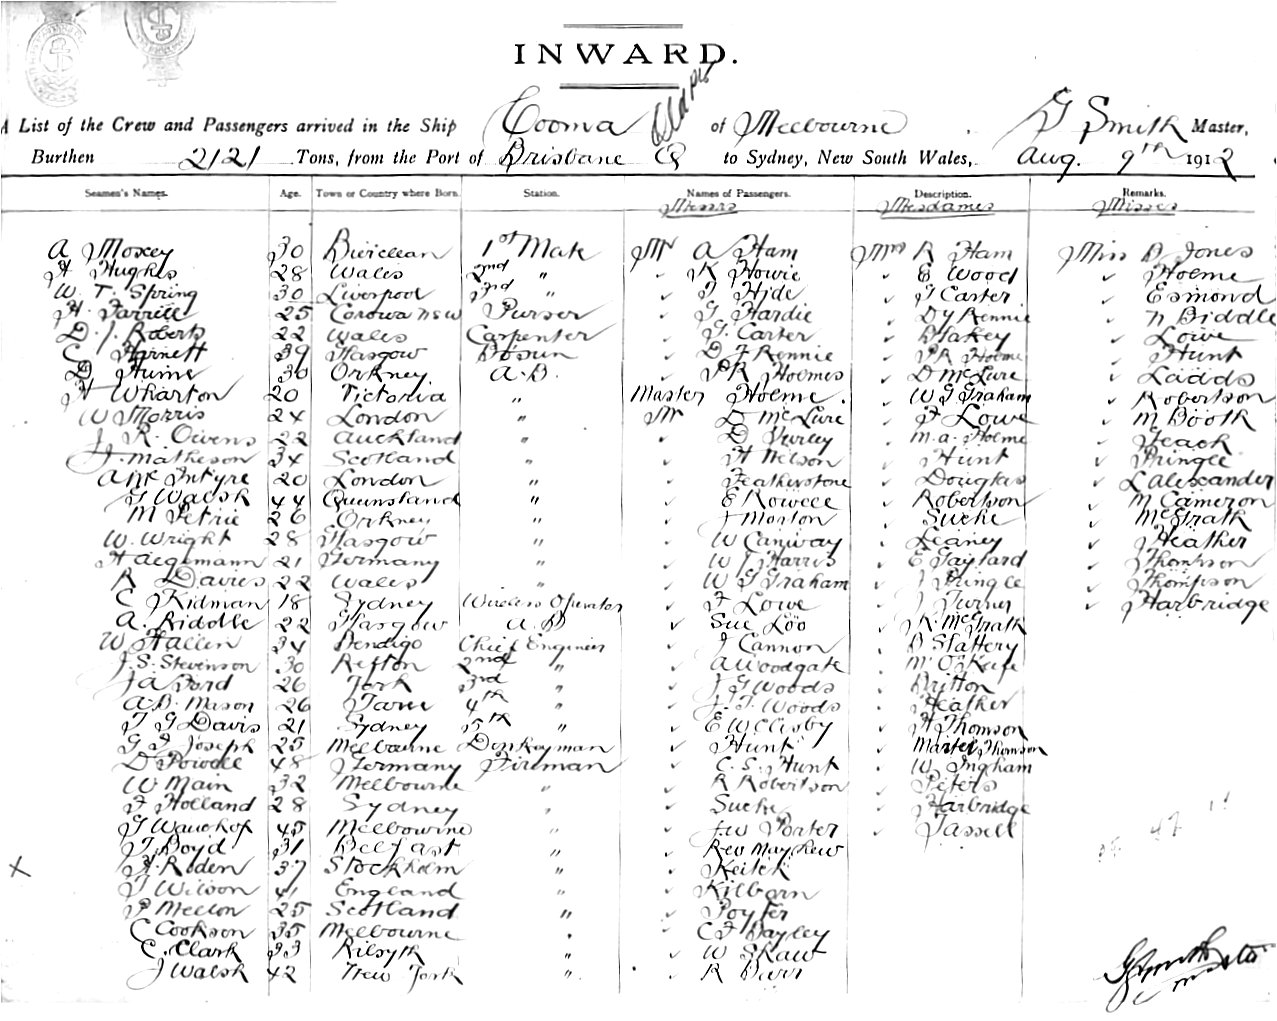 INWARD.
A List of the Crew and Passengers arrived in the Ship Cooma of Melbourne, G Smith Master,
Burthen 2121 Tons, from the Port of Brisbane Q to Sydney, New South Wales, Aug. 9th 1912
Seamen's Names. Age. Town or Country where Born. Station. Names of Passengers. Description. Remarks.
Messrs Mesdames Misses
A Moxey 30 1st Mate Mr A Ham Mrs R Ham Miss B Jones
H Hughes 28 Wales 2nd " K Howie E Wood Holme
W. T. Spring 30 Liverpool 3rd " T Hide J Carter Esmond
H. Farrell 25 Corowa NSW Purser G Hardie D Y Rennie N Biddle
D. J. Roberts 22 Wales Carpenter G. Carter Blakey Lowe
C Harnett 39 Glasgow Bosun D J Rennie P R Holme Hunt
D Hume 30 Orkney A.B. P R Holmes D McLure Ladds
H Wharton 20 Victoria " Master Holme. W G Graham Robertson
W Morris 24 London " Mr D McLure F Lowe M Booth
J. R. Owens 22 Auckland " D Furley M.A. Holme Teach
J. Matheson 34 Scotland " H Nelson Hunt Pringle
A McIntyre 20 London " Featherstone Douglas L Alexander
T Walsh 44 Queensland " E Rowell Robertson M Cameron
M Petrie 26 Orkney " J Morton Suche McGrath
W. Wright 28 Glasgow " W Caniway Leaney Heather
H Aegimann 21 Germany " W J Harris E Gayfard Thompson
R Davies 22 Wales " W G Graham J Pringle Thompson
C Kidman 18 Sydney Wireless Operator F Lowe J Turner Harbridge
A. Riddle 22 Glasgow A.B Sue Loo R McGrath
W Hallen 34 Bendigo Chief Engineer J Cannon B Slattery
J. S. Stevenson 30 Refton 2nd " A Woodgate M O'Keefe
J A Ford 26 York 3rd " J G Woods Britton
A. B. Mason 26 4th " J. T. Woods Heather
T G Davis 21 Sydney 5th " E W Clisby H Thomson
G. F. Joseph 25 Melbourne Donkeyman Hunt Master Thomson
D Powell 48 Germany Fireman C. S. Hunt W Ingham
W Main 32 Melbourne " R Robertson Peters
F Holland 28 Sydney " Suche Harbridge
G Wauchof 45 Melbourne " J W Porter Tassell
T. Boyd 31 Belfast " Rev Mayhew
X H. Roden 37 Stockholm " Keitch
T Wilson 41 England " Kilborn
P Mellon 25 Scotland " Poyser
C Cookson 35 Melbourne " C F Bayley
C. Clark 33 Kilsyth " W Shaw
J Walsh 42 New York " R Burr
G Smith
Master